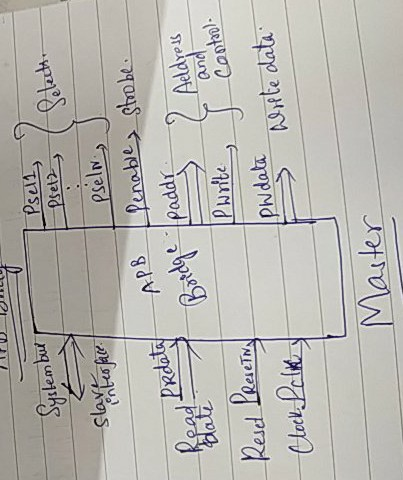 APB Bridge
System bus
Slave
interface
Read PRdata
data
Reset PReseTn
Clock Pclk
APB
Bridge
Psel1
Psel2
Pseln
Selects.
Penable Strobe.
Paddr.
Pwrite
Address
and
Control.
Pwdata Write data.
Master